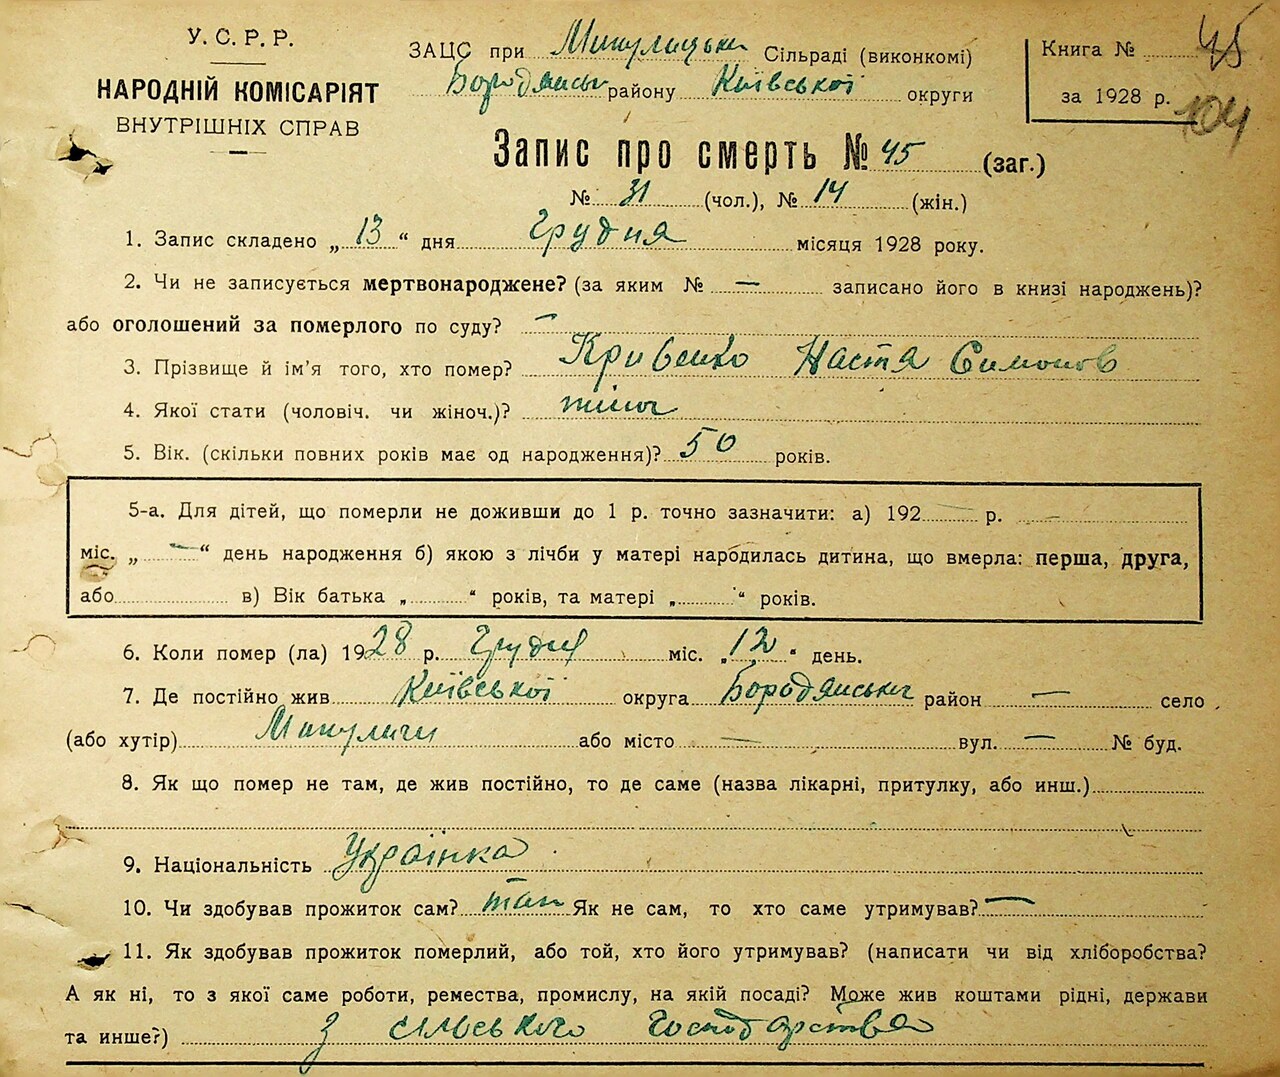 У. С. Р. Р.
НАРОДНІЙ КОМІСАРІЯТ
ВНУТРІШНІХ СПРАВ
ЗАЦС при Микулицьк Сільраді (виконкомі)
Бородянськ району Київської округи
Книга № 45
за 1928 р. 104
Запис про смерть № 45 (заг.)
№ 31 (чол.), № 14 (жін.)
1. Запис складено „ 13 “ дня Грудня місяця 1928 року.
2. Чи не записується мертвонароджене? (за яким № — записано його в книзі народжень)?
або оголошений за померлого по суду? —
3. Прізвище й ім'я того, хто помер? Кривенко Настя Симонов
4. Якої стати (чоловіч. чи жіноч.)? жіноч
5. Вік. (скільки повних років має од народження)? 50 років.
5-а. Для дітей, що померли не доживши до 1 р. точно зазначити: а) 192 — р. —
міс. „ — “ день народження б) якою з лічби у матері народилась дитина, що вмерла: перша, друга,
або в) Вік батька „ “ років, та матері „ “ років.
6. Коли помер (ла) 1928 р. Грудня міс. „ 12 “ день.
7. Де постійно жив Київської округа Бородянськи район — село
(або хутір) Микуличи або місто — вул. — № буд.
8. Як що помер не там, де жив постійно, то де саме (назва лікарні, притулку, або инш.)
9. Національність Українка
10. Чи здобував прожиток сам? так Як не сам, то хто саме утримував? —
11. Як здобував прожиток померлий, або той, хто його утримував? (написати чи від хліборобства?
А як ні, то з якої саме роботи, ремества, промислу, на якій посаді? Може жив коштами рідні, держави
та инше?) З сільського господарства